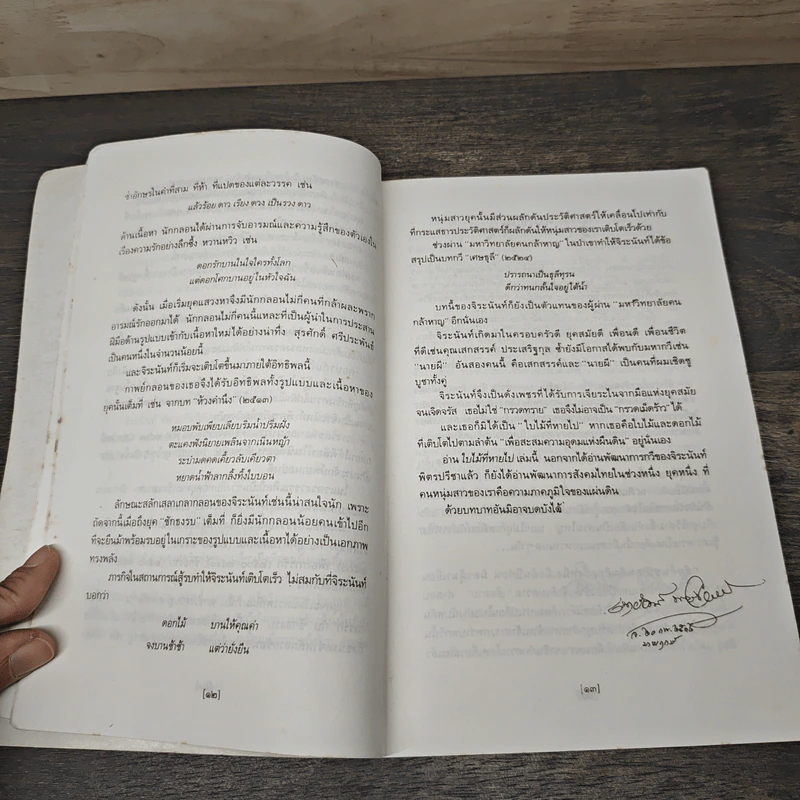 ช้ำอักษรในคำที่สาม ที่ห้า ที่แปดของแต่ละวรรค เช่น
แล้วร้อย ดาว เรียง ดวง เป็นรวง ดาว
ด้านเนื้อหา นักกลอนได้ผ่านการจับอารมณ์และความรู้สึกของตัวเองใน
เรื่องความรักอย่างลึกซึ้ง หวานหวิว เช่น
ดอกรักบานในใจใครทั้งโลก
แต่ดอกโศกบานอยู่ในหัวใจฉัน
ดังนั้น เมื่อเริ่มยุคแสวงหาจึงมีนักกลอนไม่กี่คนที่กล้าผละพราก
อารมณ์รักออกมาได้ นักกลอนไม่กี่คนนี้แหละที่เป็นผู้นำในการประสาน
ฝีมือด้านรูปแบบเข้ากับเนื้อหาใหม่ได้อย่างน่าทึ่ง สุรศักดิ์ ศรีประพันธ์
เป็นคนหนึ่งในจำนวนน้อยนี้
และจิระนันท์ก็เริ่มจะเติบโตขึ้นมาภายใต้อิทธิพลนี้
กาพย์กลอนของเธอจึงได้รับอิทธิพลทั้งรูปแบบและเนื้อหาของ
ยุคนั้นเต็มที่ เช่น จากบท "ห้วงคำนึง" (๒๕๑๓)
หมอบพับเพียบเลียบริมน้ำปริ่มฝั่ง
ตะแคงฟังนิยายเพลินจากเนินหญ้า
ระบำมดคดเคี้ยวลับเคียวตา
หยาดน้ำฟ้าลากลิ้งทิ้งใบบอน
ลักษณะสลักเสลาเกลากลอนของจิระนันท์เช่นนี้น่าสนใจนัก เพราะ
ถัดจากนี้เมื่อถึงยุค "ชักธงรบ" เต็มที่ ก็ยิ่งมีนักกลอนน้อยคนเข้าไปอีก
ที่จะยืนม้าพร้อมรบอยู่ในเกราะของรูปแบบและเนื้อหาได้อย่างเป็นเอกภาพ
ทรงพลัง
ภารกิจในสถานการณ์สู้รบทำให้จิระนันท์เติบโตเร็ว ไม่สมกับที่จิระนันท์
บอกว่า
ดอกไม้ บานให้คุณค่า
จงบานช้าช้า แต่ว่ายั่งยืน
[๑๒]
หนุ่มสาวยุคนั้นมีส่วนผลักดันประวัติศาสตร์ให้เคลื่อนไปเท่ากับ
ที่กระแสธารประวัติศาสตร์ก็ผลักดันให้หนุ่มสาวของเราเติบโตเร็วด้วย
ช่วงผ่าน "มหาวิทยาลัยคนกล้าหาญ" ในป่าเขาทำให้จิระนันท์ได้ข้อ
สรุปเป็นบทกวี "เศษธุลี" (๒๕๒๔)
ปรารถนาเป็นธุลีทุรน
ดีกว่าทนกลั้นใจอยู่ใต้น้ำ
บทนี้ของจิระนันท์ก็ยังเป็นตัวแทนของผู้ผ่าน "มหาวิทยาลัยคน
กล้าหาญ" อีกนั่นเอง
จิระนันท์เกิดมาในครอบครัวดี ยุคสมัยดี เพื่อนดี เพื่อนชีวิต
ที่ดีเช่นคุณเสกสรรค์ ประเสริฐกุล ซ้ำยังมีโอกาสได้พบกับมหากวีเช่น
"นายผี" อันสองคนนี้ คือเสกสรรค์และ "นายผี" เป็นคนที่ผมเชิดชู
บูชาทั้งคู่
จิระนันท์จึงเป็นดั่งเพชรที่ได้รับการเจียระไนจากมือแห่งยุคสมัย
จนเจิดจรัส เธอไม่ใช่ "กรวดทราย" เธอจึงไม่อาจเป็น "กรวดเม็ดร้าว" ได้
และเธอก็มิได้เป็น "ใบไม้ที่หายไป" หากเธอคือใบไม้และดอกไม้
ที่เติบโตไปตามลำต้น "เพื่อสะสมความอุดมแห่งผืนดิน" อยู่นั่นเอง
อ่าน ใบไม้ที่หายไป เล่มนี้ นอกจากได้อ่านพัฒนาการกวีของจิระนันท์
พิตรปรีชาแล้ว ก็ยังได้อ่านพัฒนาการสังคมไทยในช่วงหนึ่ง ยุคหนึ่ง ที่
คนหนุ่มสาวของเราคือความภาคภูมิใจของแผ่นดิน
ด้วยบทบาทอันมิอาจบดบังได้
[๑๓]